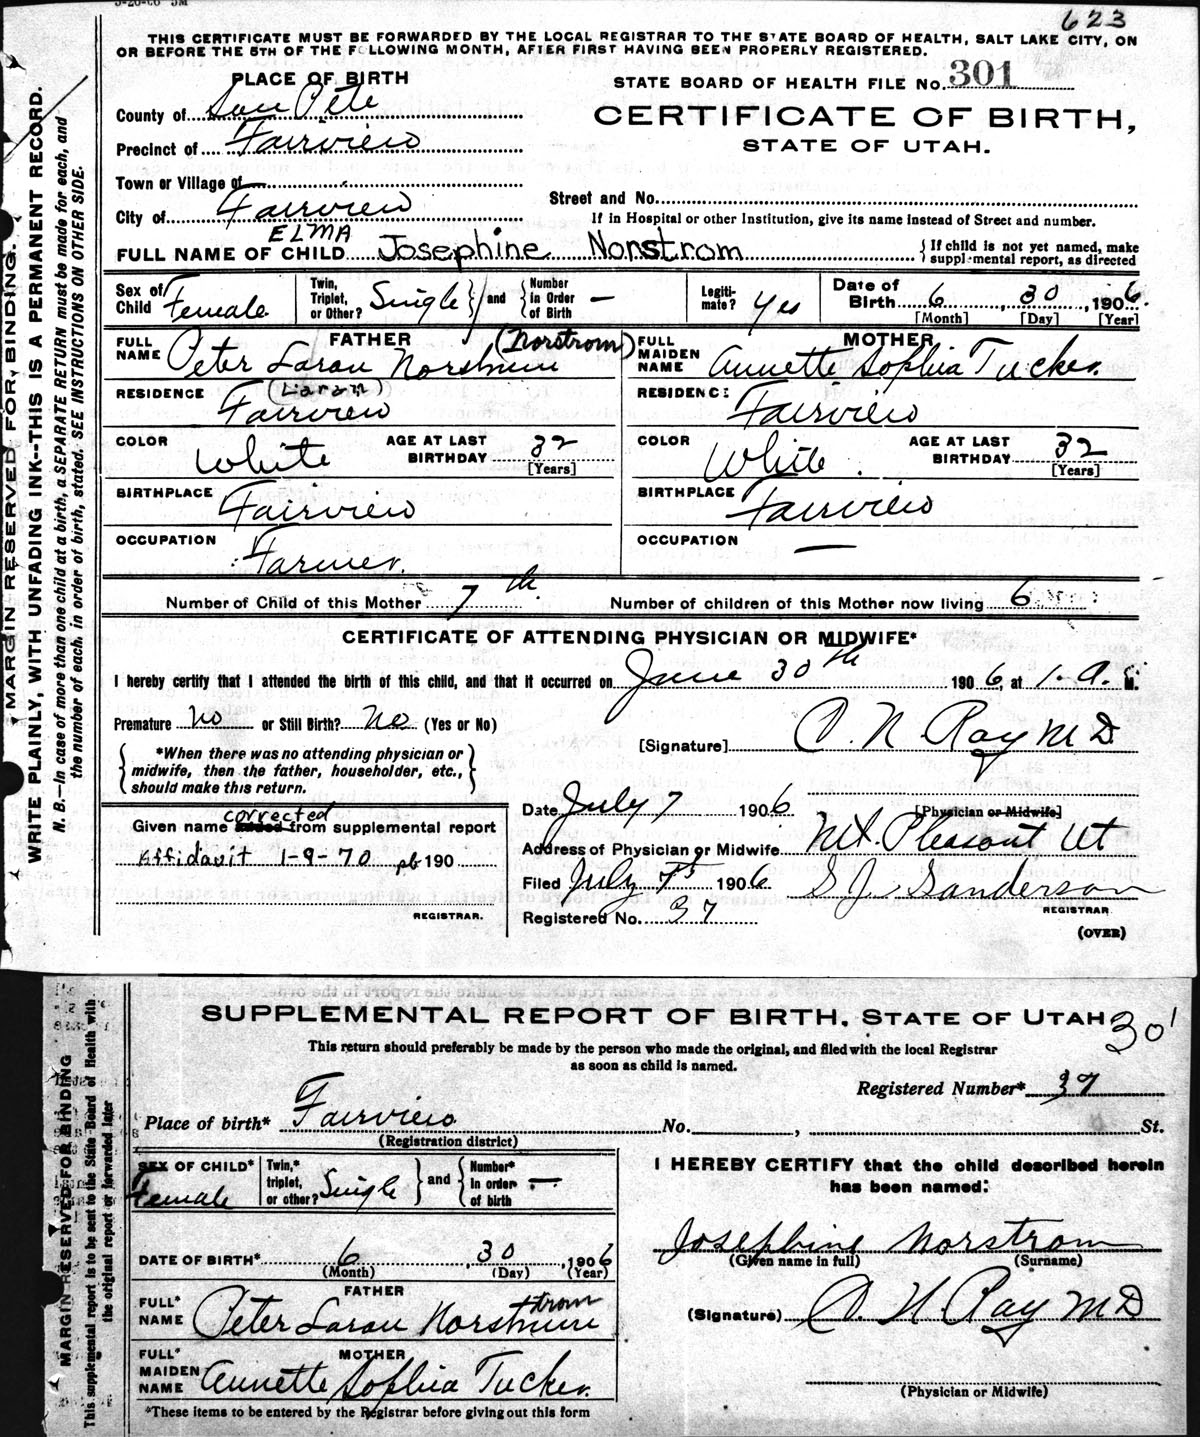 623
THIS CERTIFICATE MUST BE FORWARDED BY THE LOCAL REGISTRAR TO THE STATE BOARD OF HEALTH, SALT LAKE CITY, ON
OR BEFORE THE 5TH OF THE FOLLOWING MONTH, AFTER FIRST HAVING BEEN PROPERLY REGISTERED.
MARGIN RESERVED FOR BINDING.
WRITE PLAINLY, WITH UNFADING INK--THIS IS A PERMANENT RECORD.
N. B.—In case of more than one child at a birth, a SEPARATE RETURN must be made for each, and
the number of each, in order of birth, stated. SEE INSTRUCTIONS ON OTHER SIDE.
PLACE OF BIRTH
STATE BOARD OF HEALTH FILE No. 301
County of San Pete
CERTIFICATE OF BIRTH,
Precinct of Fairview
STATE OF UTAH.
Town or Village of
Street and No.
City of Fairview
If in Hospital or other Institution, give its name instead of Street and number.
ELMA
FULL NAME OF CHILD Josephine Norstrom
{ If child is not yet named, make
supplemental report, as directed
Sex of Child Female
Twin, Triplet, or Other? Single } and { Number in Order of Birth —
Legitimate? Yes
Date of Birth 6, 30, 1906.
[Month] [Day] [Year]
FATHER
FULL NAME Peter Laran (Norstrom)
(Laran)
RESIDENCE Fairview
COLOR White
AGE AT LAST BIRTHDAY 32
[Years]
BIRTHPLACE Fairview
OCCUPATION Farmer.
MOTHER
FULL MAIDEN NAME Annette Sophia Tucker.
RESIDENCE: Fairview
COLOR White.
AGE AT LAST BIRTHDAY 32
[Years]
BIRTHPLACE Fairview
OCCUPATION —
Number of Child of this Mother 7th
Number of children of this Mother now living 6
CERTIFICATE OF ATTENDING PHYSICIAN OR MIDWIFE*
I hereby certify that I attended the birth of this child, and that it occurred on June 30th 1906, at 1. A. M.
Premature No or Still Birth? No (Yes or No)
[Signature] O. N. Ray M D
{ *When there was no attending physician or
midwife, then the father, householder, etc.,
should make this return. }
[Physician or Midwife]
corrected
Given name added from supplemental report
Affidavit 1-9-70 pb 190
REGISTRAR.
Date July 7 1906
Address of Physician or Midwife Mt. Pleasant Ut
Filed July 7th 1906 S J Sanderson
REGISTRAR
Registered No. 37
(OVER)
SUPPLEMENTAL REPORT OF BIRTH, STATE OF UTAH
301
This return should preferably be made by the person who made the original, and filed with the local Registrar
as soon as child is named.
MARGIN RESERVED FOR BINDING
This supplemental report is to be sent to the State Board of Health with
the original report or forwarded later
Registered Number* 37
Place of birth* Fairview No. , St.
(Registration district)
SEX OF CHILD* Female
Twin,* triplet, or other? Single } and { Number* in order of birth —
I HEREBY CERTIFY that the child described herein
has been named:
Josephine Norstrom
(Given name in full) (Surname)
DATE OF BIRTH* 6, 30, 1906
(Month) (Day) (Year)
FATHER
FULL* NAME Peter Laran
trom
(Signature) O. N. Ray M D
MOTHER
FULL* MAIDEN NAME Annette Sophia Tucker.
(Physician or Midwife)
*These items to be entered by the Registrar before giving out this form